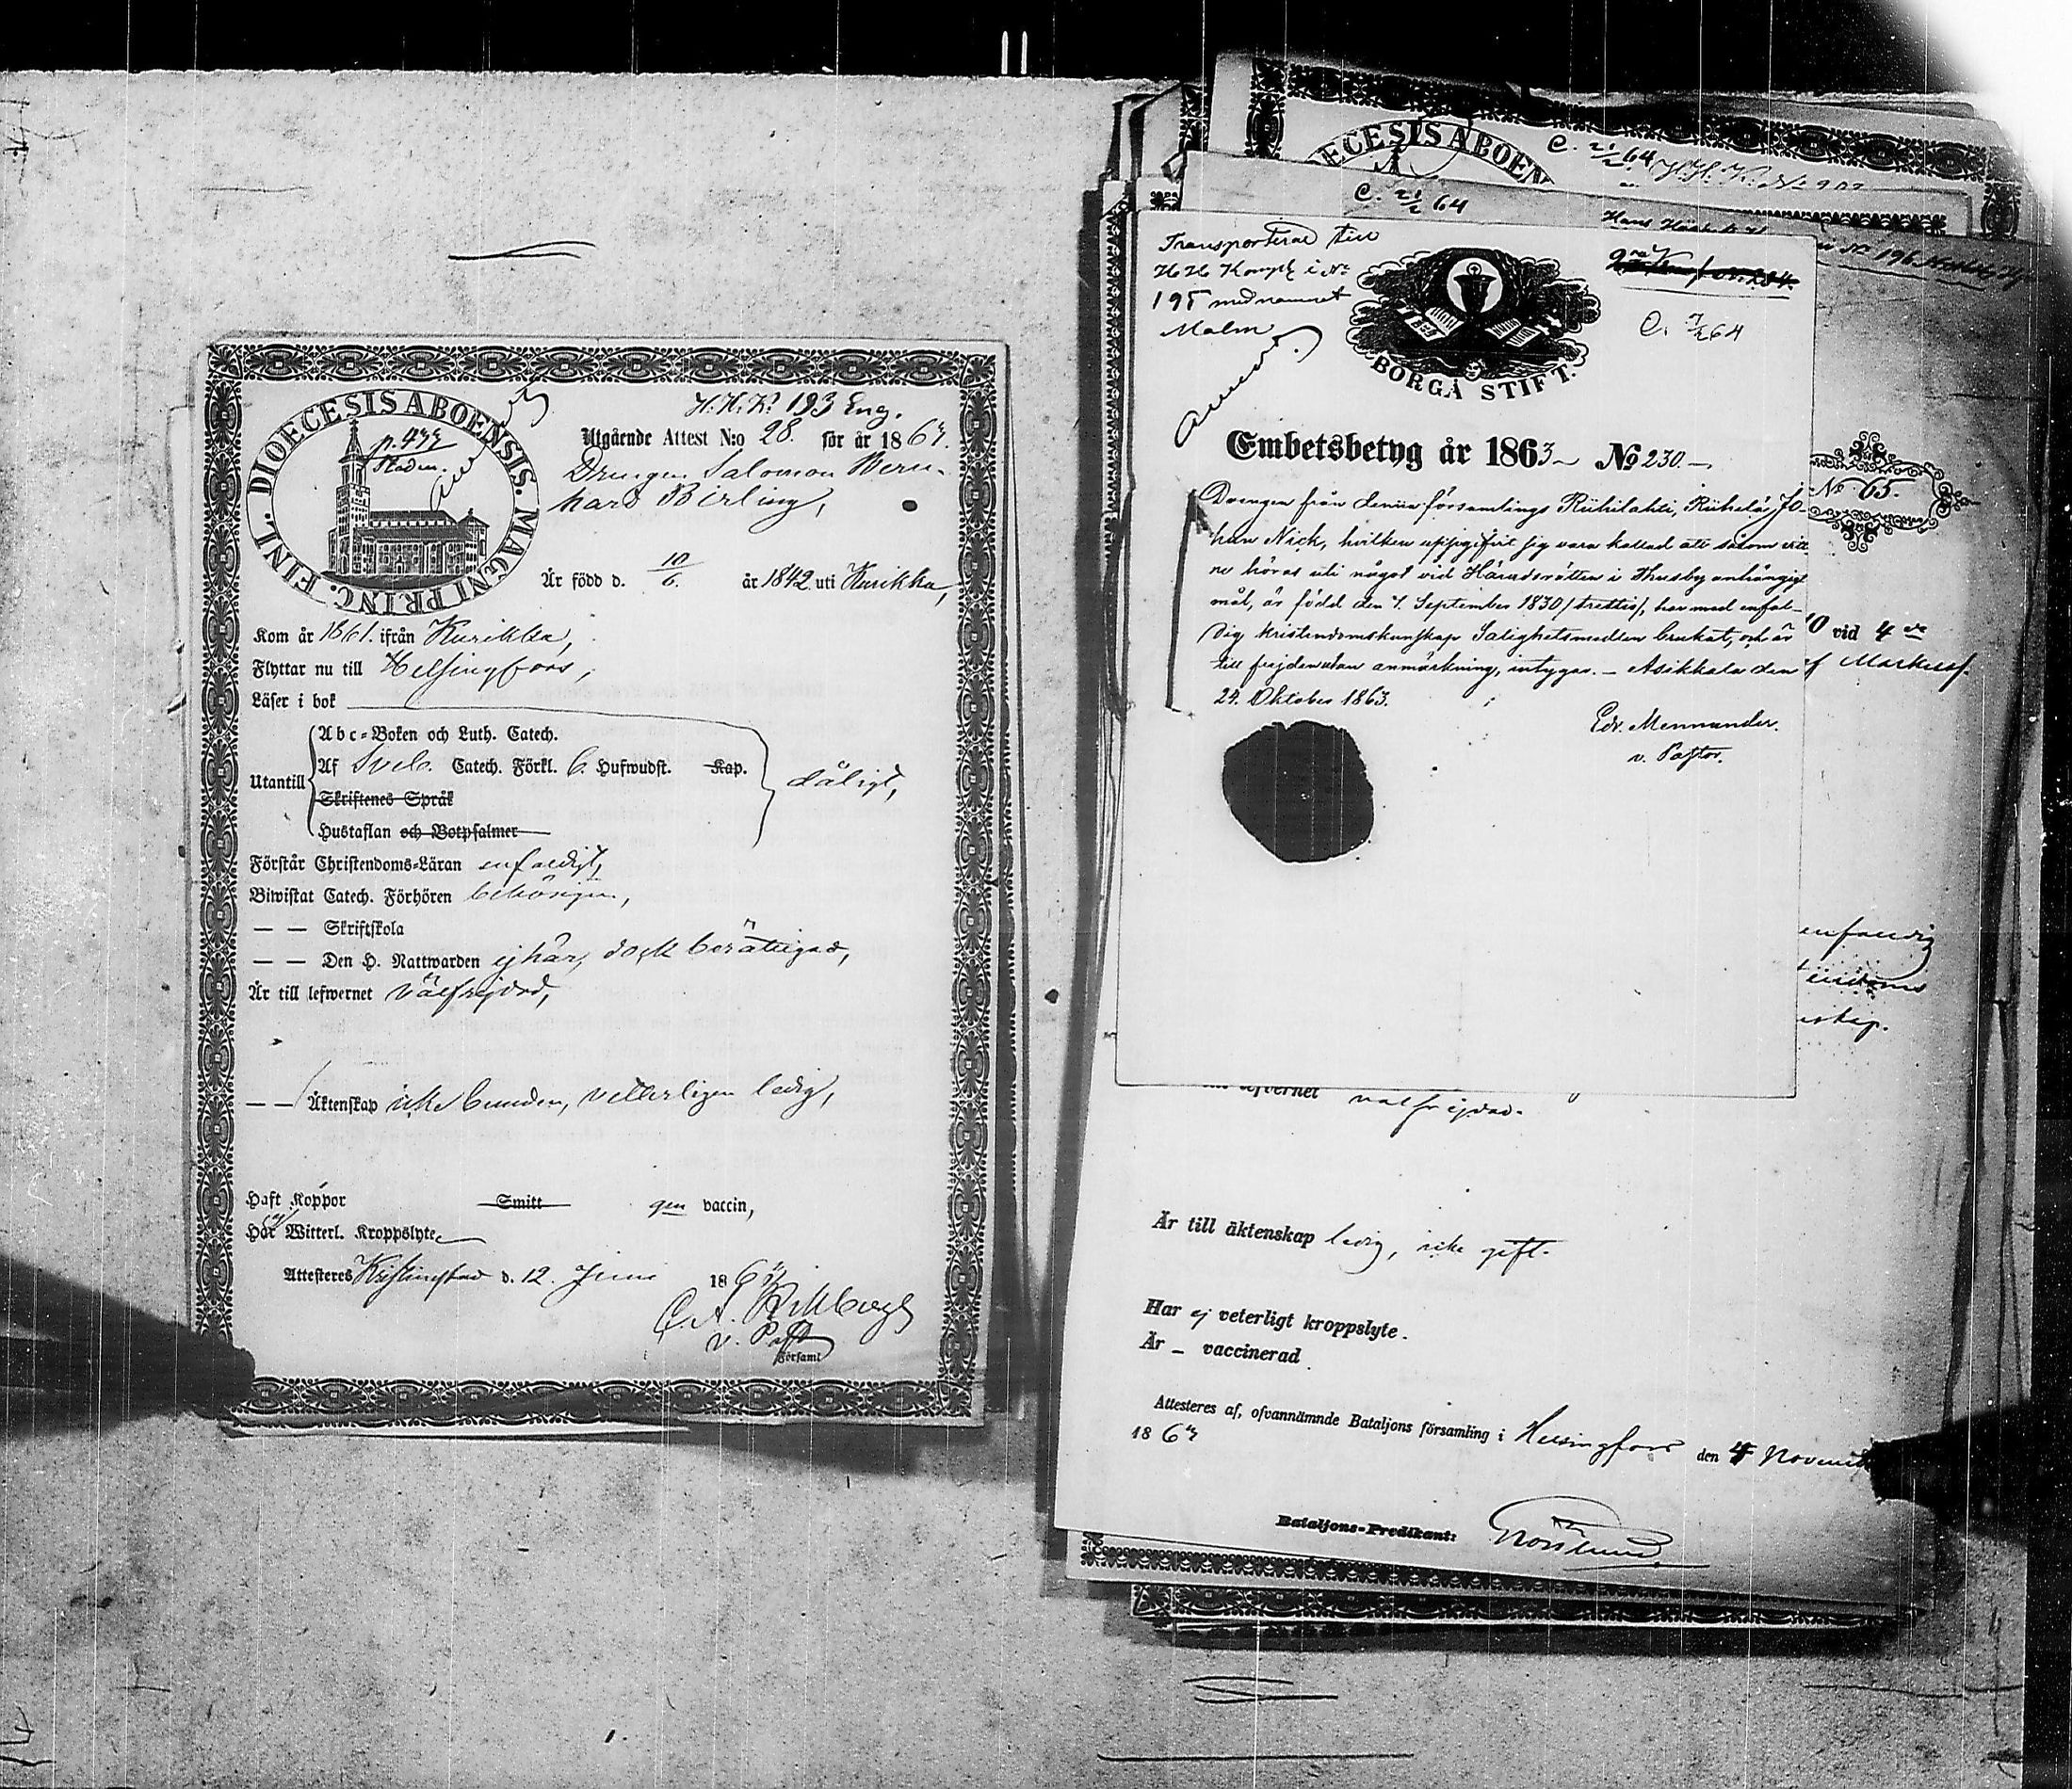 DIOECESIS ABOENSIS. MAGNI PRINC. FINL.
p. 433
Staden.
H. H. K. 193 Eng.
Utgående Attest N:o 28. för år 1863.
Drengen Salomon Bern-
hard Birling,
Är född d. 10/6. år 1842 uti Kurikka,
Kom år 1861. ifrån Kurikka,
Flyttar nu till Helsingfors,
Läser i bok
Abc-Boken och Luth. Catech.
Utantill Af Sveb. Catech. Förkl. 6. Hufwudst. Kap. dåligt,
Skriftenes Språk
Hustaflan och Botpsalmer
Förstår Christendoms-Läran enfaldigt,
Biwistat Catech. Förhören behörigen,
— — Skriftskola
— — Den H. Nattwarden ej här, dock berättigad,
Är till lefwernet välfrejdad,
— — Äktenskap icke bunden, vetterligen ledig,
Haft Koppor Smitt gen vaccin,
Har ej Witterl. Kroppslyte
Attesteres Kristinestad d. 12. Juni 1863
v. Past
Församl
DIOECESIS ABOEN
C. 21/2 64
C. 21/2 64
Transporterad till
H H Komp: i No
195 med namnet
Malm
C. 7/2 64
BORGÅ STIFT.
Embetsbetyg år 1863 No 230.
Drengen från denna församlings Riihilahti, Riihelä, Jo-
han Nick, hvilken uppgifvit sig vara kallad att såsom vitt
ne höras uti något vid Häradsrätten i Thusby anhängigt
mål, är född den 7. September 1830 /trettio/, har med enfal-
dig kristendomskunskap Salighetsmedlen brukat, och är
till frejden utan anmärkning, intygar. — Asikkala den
24. Oktober 1863.
Edv. Mennander.
v. Pastor.
No 65.
0 vid 4 de
f Markusf.
enfaldig
tendoms
nskap.
efvernet välfrejdad.
Är till äktenskap ledig, icke gift.
Har ej veterligt kroppslyte.
Är — vaccinerad
Attesteres af, ofvannämnde Bataljons församling i Helsingfors den 4 Novemb
1863
Bataljons-Predikant: